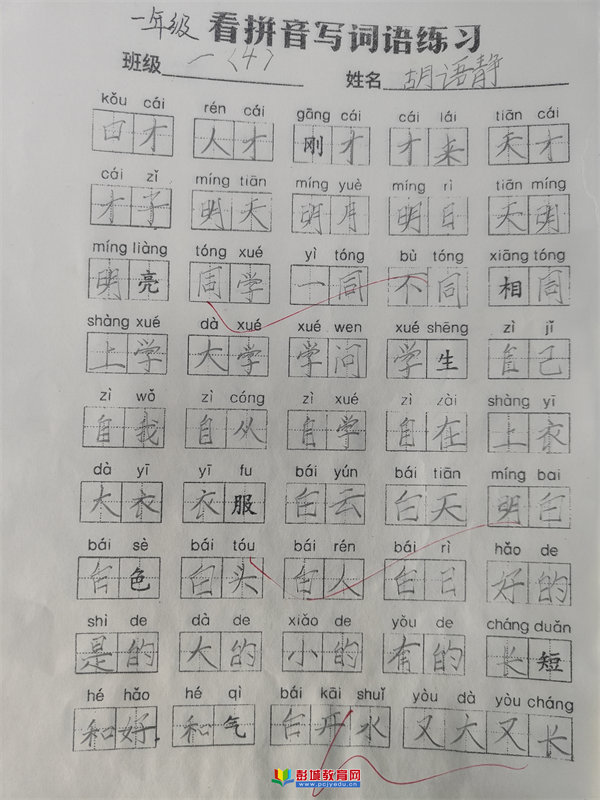 一年级 看拼音写词语练习
班级 一（4） 姓名 胡语静
kǒu cái rén cái gāng cái cái lái tiān cái
口才 人才 刚才 才来 天才
cái zǐ míng tiān míng yuè míng rì tiān míng
才子 明天 明月 明日 天明
míng liàng tóng xué yì tóng bù tóng xiāng tóng
明亮 同学 一同 不同 相同
shàng xué dà xué xué wen xué shēng zì jǐ
上学 大学 学问 学生 自己
zì wǒ zì cóng zì xué zì zài shàng yī
自我 自从 自学 自在 上衣
dà yī yī fu bái yún bái tiān míng bai
大衣 衣服 白云 白天 明白
bái sè bái tóu bái rén bái rì hǎo de
白色 白头 白人 白日 好的
shì de dà de xiǎo de yòu de cháng duǎn
是的 大的 小的 有的 长短
hé hǎo hé qì bái kāi shuǐ yòu dà yòu cháng
和好 和气 白开水 又大又长
彭城教育网
www.pcjyedu.cn